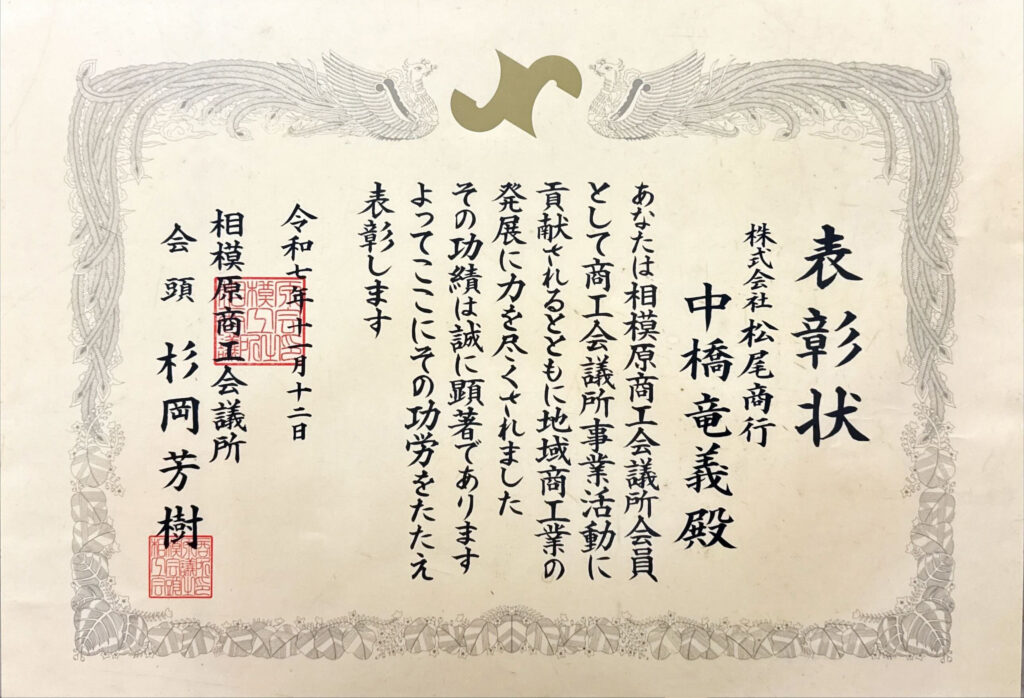 表彰状
株式会社 松尾商行
中橋竜義殿
あなたは相模原商工会議所会員
として商工会議所事業活動に
貢献されるとともに地域商工業の
発展に力を尽くされました
その功績は誠に顕著であります
よってここにその功労をたたえ
表彰します
令和七年十一月十二日
相模原商工会議所
会頭 杉岡芳樹